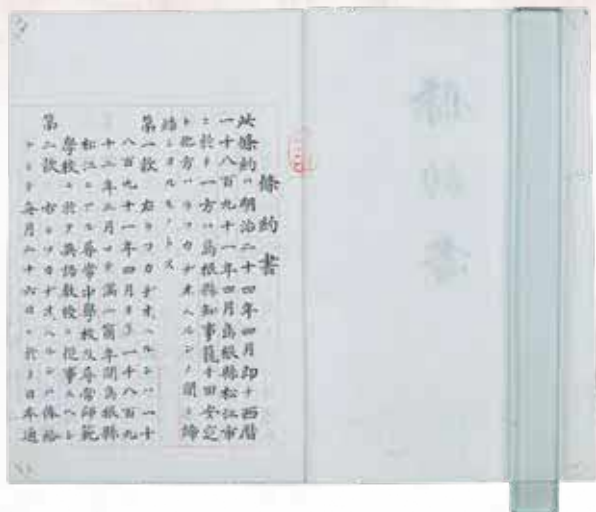 條約書
條約書
此條約ハ明治二十四年四月即チ西暦
一千八百九十一年四月島根縣松江市
ニ於テ一方ハ島根縣知事籠手田安定
ト他方ハラフカヂオヘルンノ間ニ締
結シタルモノトス
第一款 右ラフカヂオヘルンハ一千
八百九十一年四月ヨリ一千八百九
十二年三月マテ滿一箇年間島根縣
松江ニアル尋常中學校及尋常師範
學校ニ於テ英語教授ニ從事スヘシ
第二款 右ラフカヂオヘルンハ俸給
トシテ毎月二十六日ニ於テ日本通